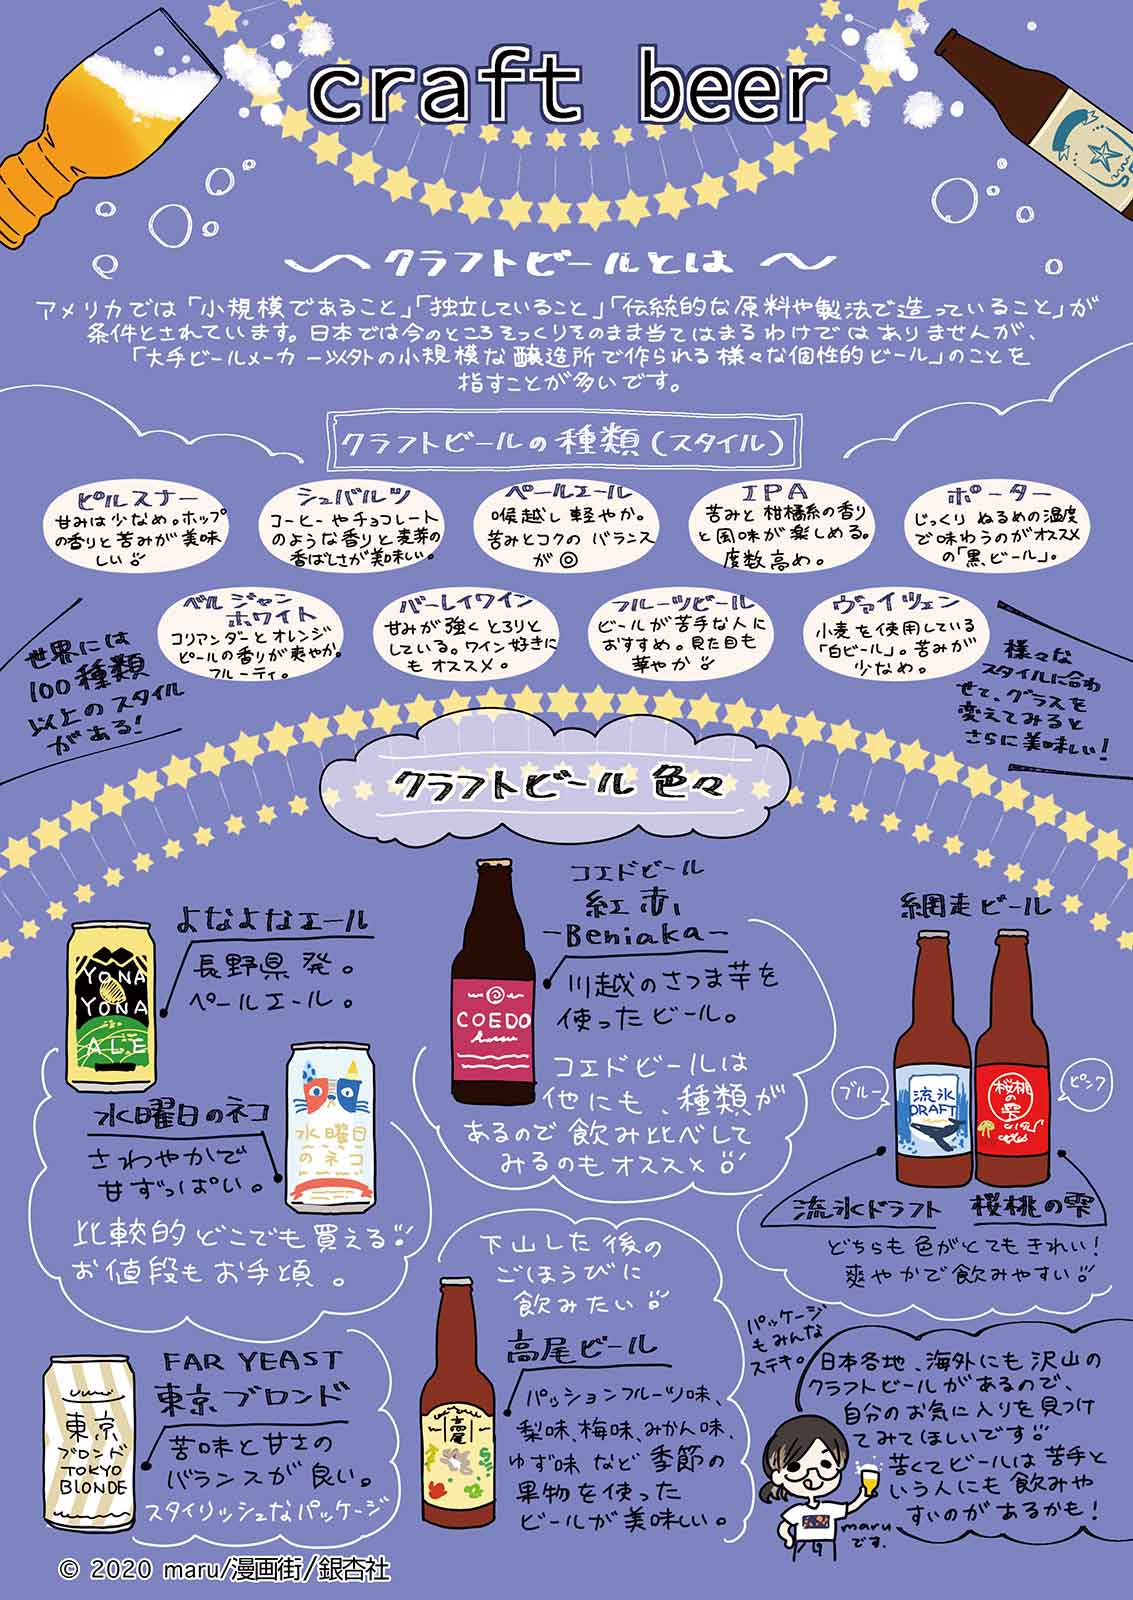 craft beer
クラフトビールとは
アメリカでは「小規模であること」「独立していること」「伝統的な原料や製法で造っていること」が
条件とされています。日本では今のところそっくりそのまま当てはまるわけではありませんが、
「大手ビールメーカー以外の小規模な醸造所で作られる様々な個性的ビール」のことを
指すことが多いです。
クラフトビールの種類(スタイル)
ピルスナー
甘みは少なめ。ホップ
の香りと苦みが美味
しい
シュバルツ
コーヒーやチョコレート
のような香りと麦芽の
香ばしさが美味しい。
ペールエール
喉越し軽やか。
苦みとコクのバランス
が◎
IPA
苦みと柑橘系の香り
と風味が楽しめる。
度数高め。
ポーター
じっくりぬるめの温度
で味わうのがオススメ
の「黒ビール」。
ベルジャン
ホワイト
コリアンダーとオレンジ
ピールの香りが爽やか。
フルーティ。
バーレイワイン
甘みが強くとろりと
している。ワイン好きに
もオススメ。
フルーツビール
ビールが苦手な人に
おすすめ。見た目も
華やか
ヴァイツェン
小麦を使用している
「白ビール」。苦みが
少なめ。
世界には
100種類
以上のスタイル
がある!
様々な
スタイルに合わ
せて、グラスを
変えてみると
さらに美味しい!
クラフトビール色々
よなよなエール
長野県発。
ペールエール。
YONA
YONA
ALE
水曜日のネコ
さわやかで
甘ずっぱい。
水曜日
のネコ
比較的どこでも買える
お値段もお手頃。
コエドビール
紅赤
-Beniaka-
川越のさつま芋を
使ったビール。
COEDO
コエドビールは
他にも、種類が
あるので飲み比べして
みるのもオススメ
網走ビール
ブルー
ピンク
流氷
DRAFT
桜桃
の雫
流氷ドラフト
桜桃の雫
どちらも色がとてもきれい!
爽やかで飲みやすい
FAR YEAST
東京ブロンド
苦味と甘さの
バランスが良い。
スタイリッシュなパッケージ
東京
ブロンド
TOKYO
BLONDE
下山した後の
ごほうびに
飲みたい
高尾ビール
パッションフルーツ味、
梨味、梅味、みかん味、
ゆず味など季節の
果物を使った
ビールが美味しい。
高尾
パッケージ
もみんな
ステキ。
日本各地、海外にも沢山の
クラフトビールがあるので、
自分のお気に入りを見つけ
てみてほしいです
苦くてビールは苦手と
いう人にも飲みや
すいのがあるかも!
maru
です。
© 2020 maru/漫画街/銀杏社